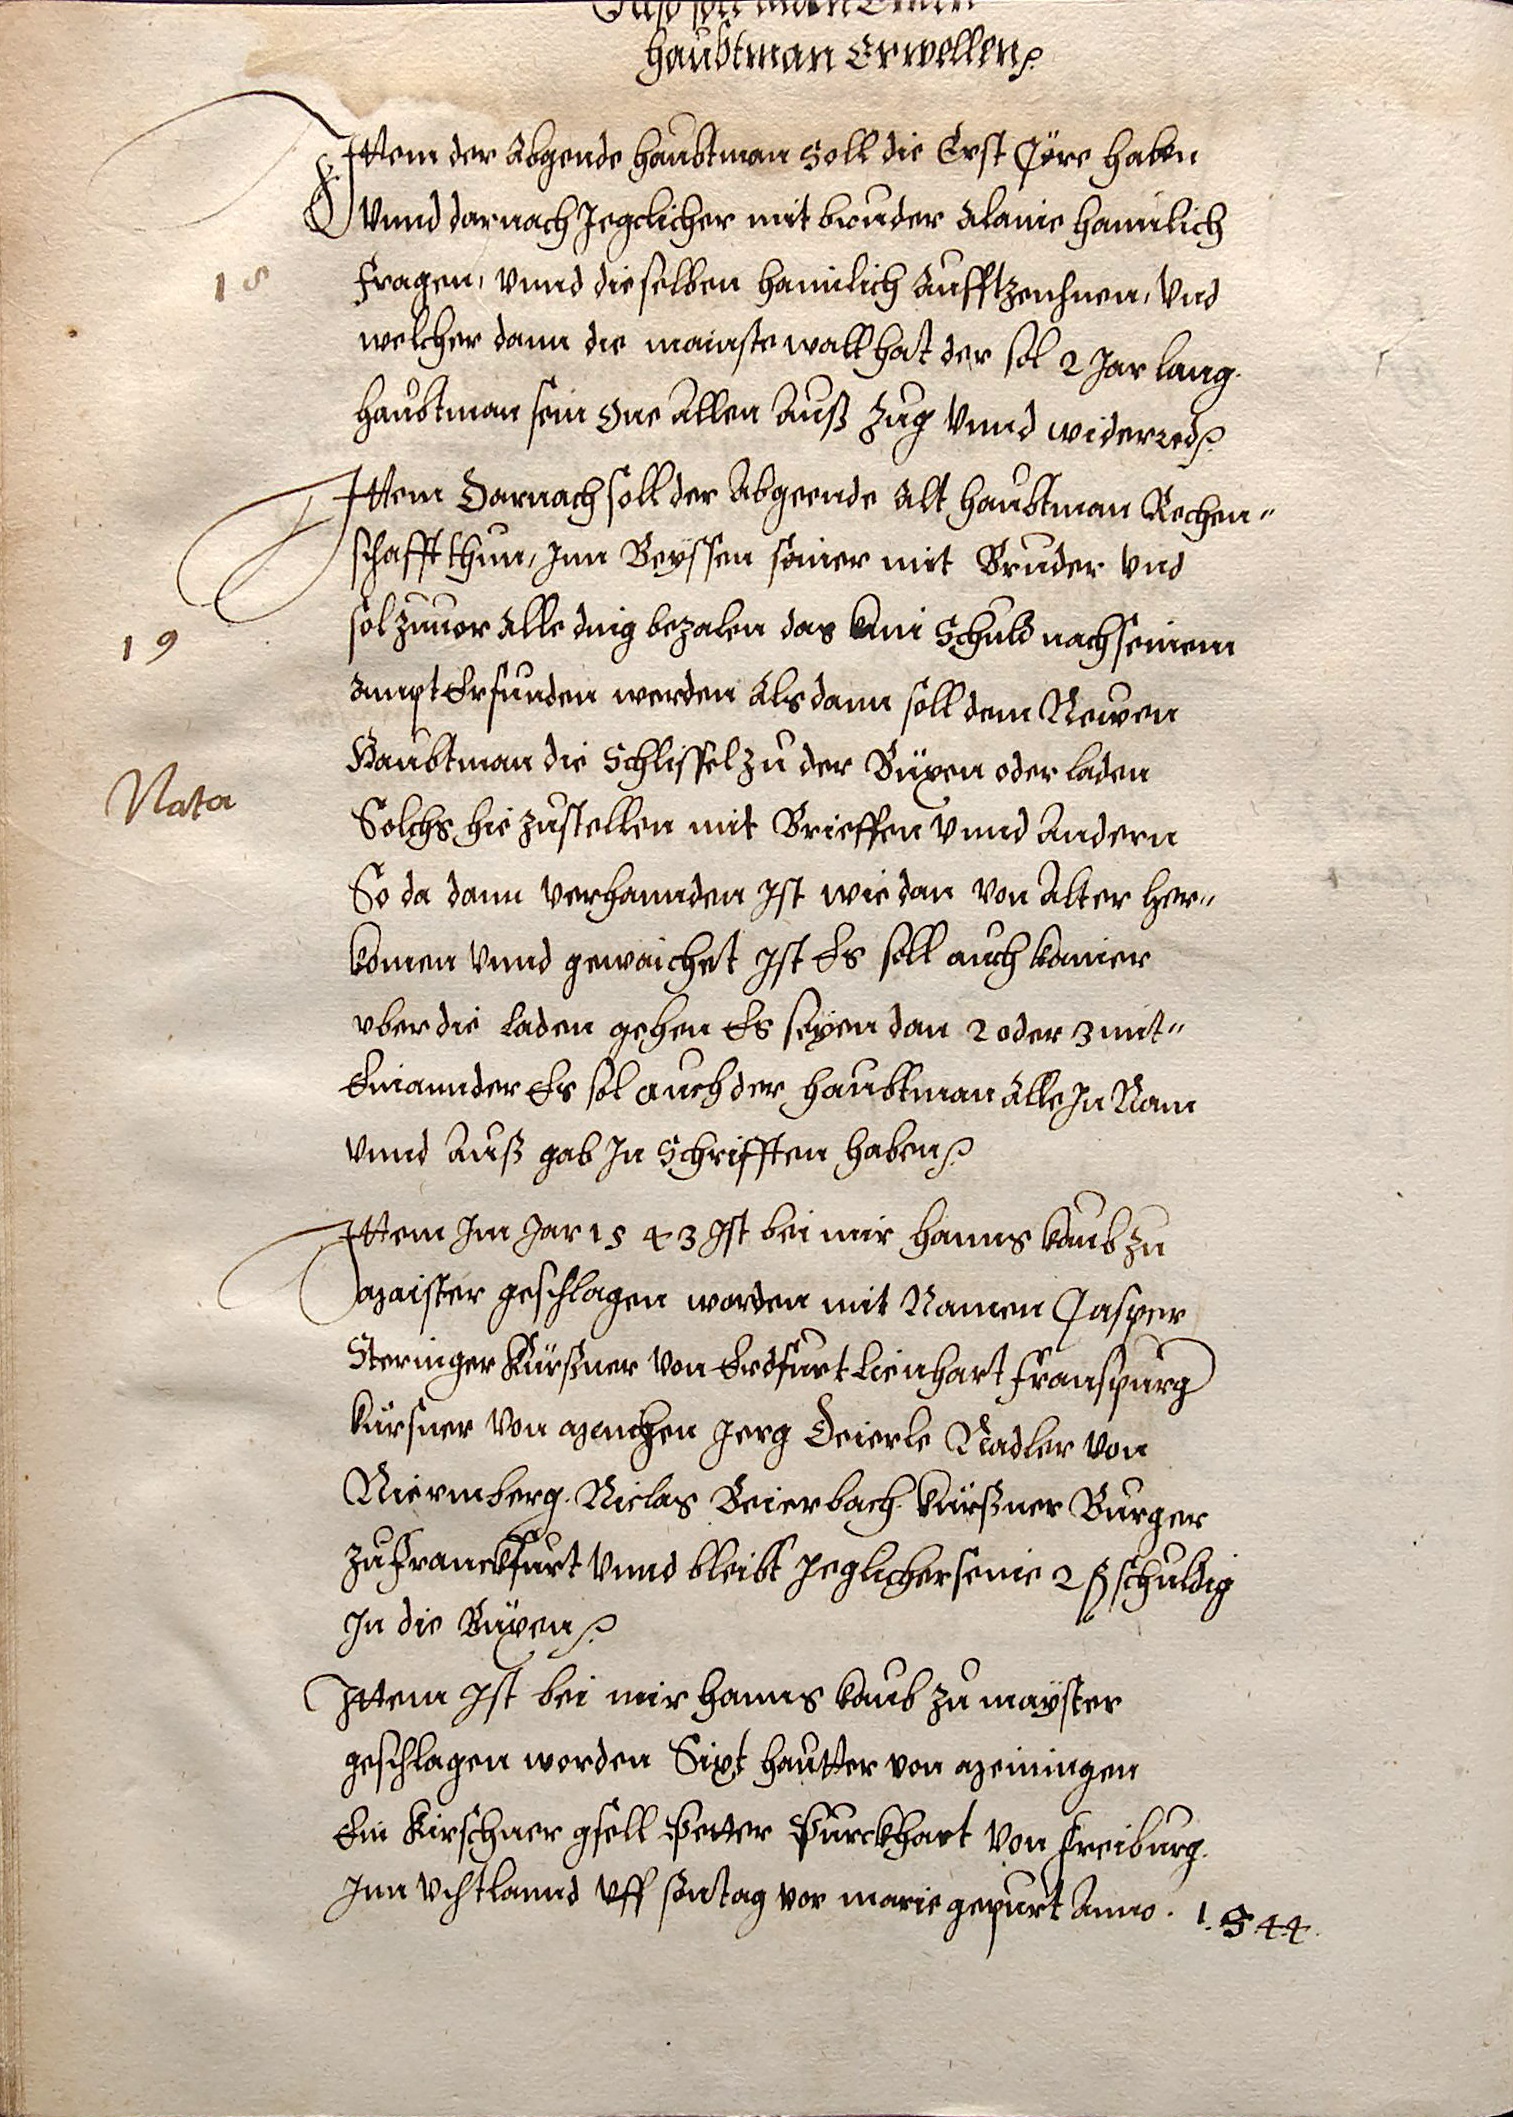 Also soll man Einen
haubtman Erwellen
Ittem der Abgende haubtman soll die Erst Cöre haben
Vnnd darnach Jegclicher mit bruder Alanie hamilich
18
fragen, vnnd die selben hamilich Aufftzenhnen, Vnd
welcher dann die mainste wall hat der sol 2 Jar lang
haubtman sein One Allen Auß Zug Vnnd widerred
Ittem Darnach soll der Abgeende Alt haubtman Rechen"
schafft thun, Inn Beyssen seiner mit Bruder Vnd
sol zuuor Alle ding bezalen das kain Schuld nach seinem
19
Ampt Erfunden werden Als dann soll dem Newen
Haubtman die Schlissel zu der Büxen oder laden
Nota
Solchs hie zustellen mit Brieffen Vnnd Andern
So da dann verhannden Ist wie dan von Alter her"
komen Vnnd gewaichet Ist Es soll auch kainer
vber die laden gehen Es seyen dan 2 oder 3 mit"
Einannder Es sol auch der haubtman Alle In Nam
Vnnd Auß gab In Schrifften haben
Ittem Im Jar 1543 Ist bei mir Hanns kaub zu
Maister geschlagen worden mit Namen Casper
Steringer Kürßner von Erdfurt Lienhart franspurg
kürsner Von Menchen Jerg Deierle Nadler von
Niermberg. Niclas Beierbach kürßner Burger
zu Franckfurt Vnnd bleibt Jeglicher seine 2 ß schuldig
In die Büxen
Ittem Ist bei mir Hanns kaub zu mayster
geschlagen worden Sixt hautter von Meiningen
Ein Kirschner gsell Petter Purckhart Von Freiburg
Inn Vchtlannd Vff sontag vor marie gepurt Anno. 1.544.